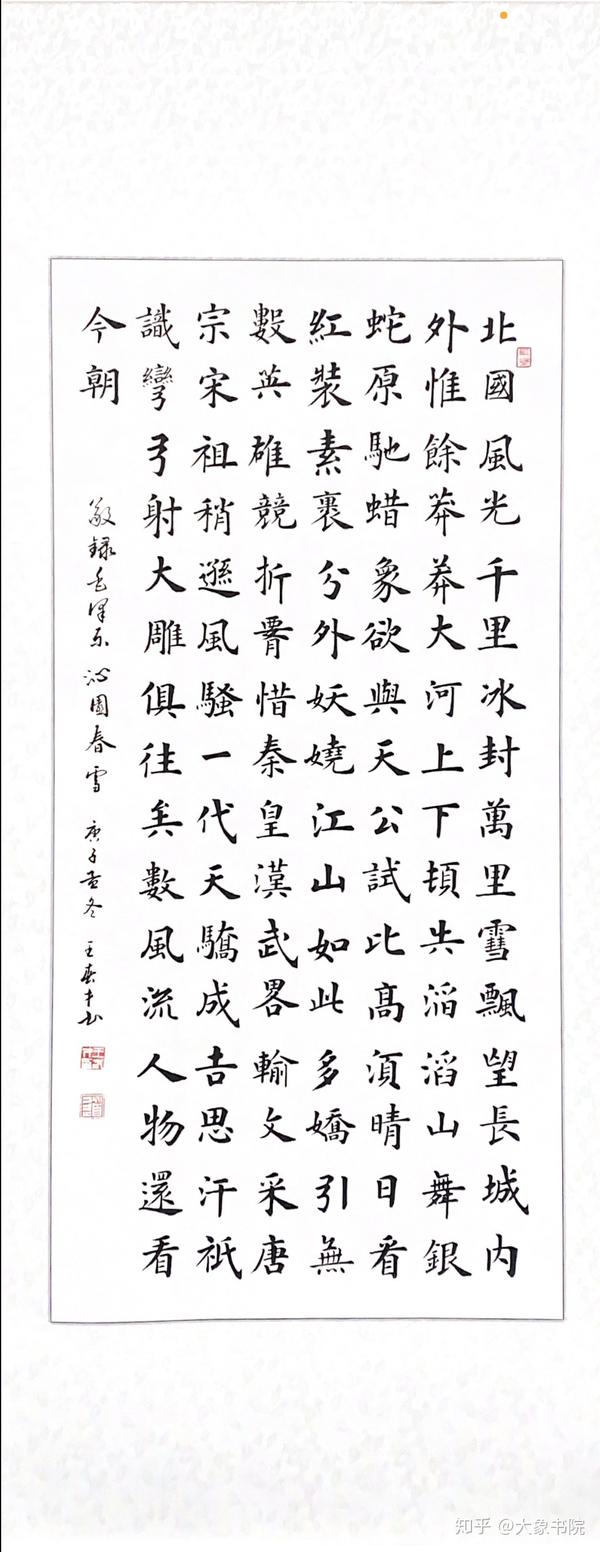 北國風光千里冰封萬里雪飄望長城内
外惟餘莽莽大河上下頓失滔滔山舞銀
蛇原馳蜡象欲與天公試比高須晴日看
紅裝素裹分外妖嬈江山如此多嬌引無
數英雄競折腰惜秦皇漢武畧輸文采唐
宗宋祖稍遜風騷一代天驕成吉思汗祇
識彎弓射大雕俱往矣數風流人物還看
今朝
敬録毛澤东沁園春雪 庚子孟冬 王春才书
知乎 @大象书院